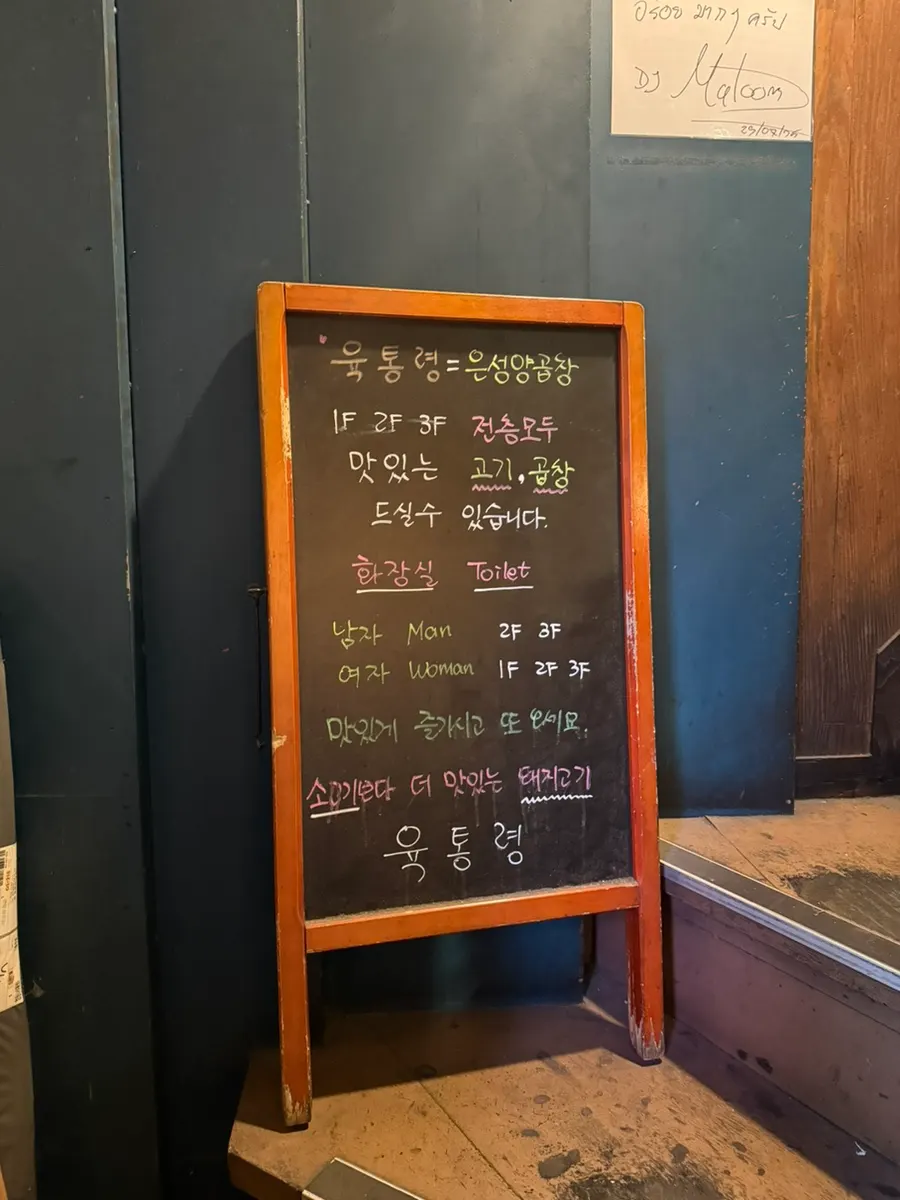 อร่อย มากๆ ครับ
DJ Matoom
육통령=은성양곱창
1F 2F 3F 전층모두
맛있는 고기, 곱창
드실수 있습니다.
화장실 Toilet
남자 Man 2F 3F
여자 Woman 1F 2F 3F
맛있게 즐기시고 또 오세요.
소고기보다 더 맛있는 돼지고기
육통령